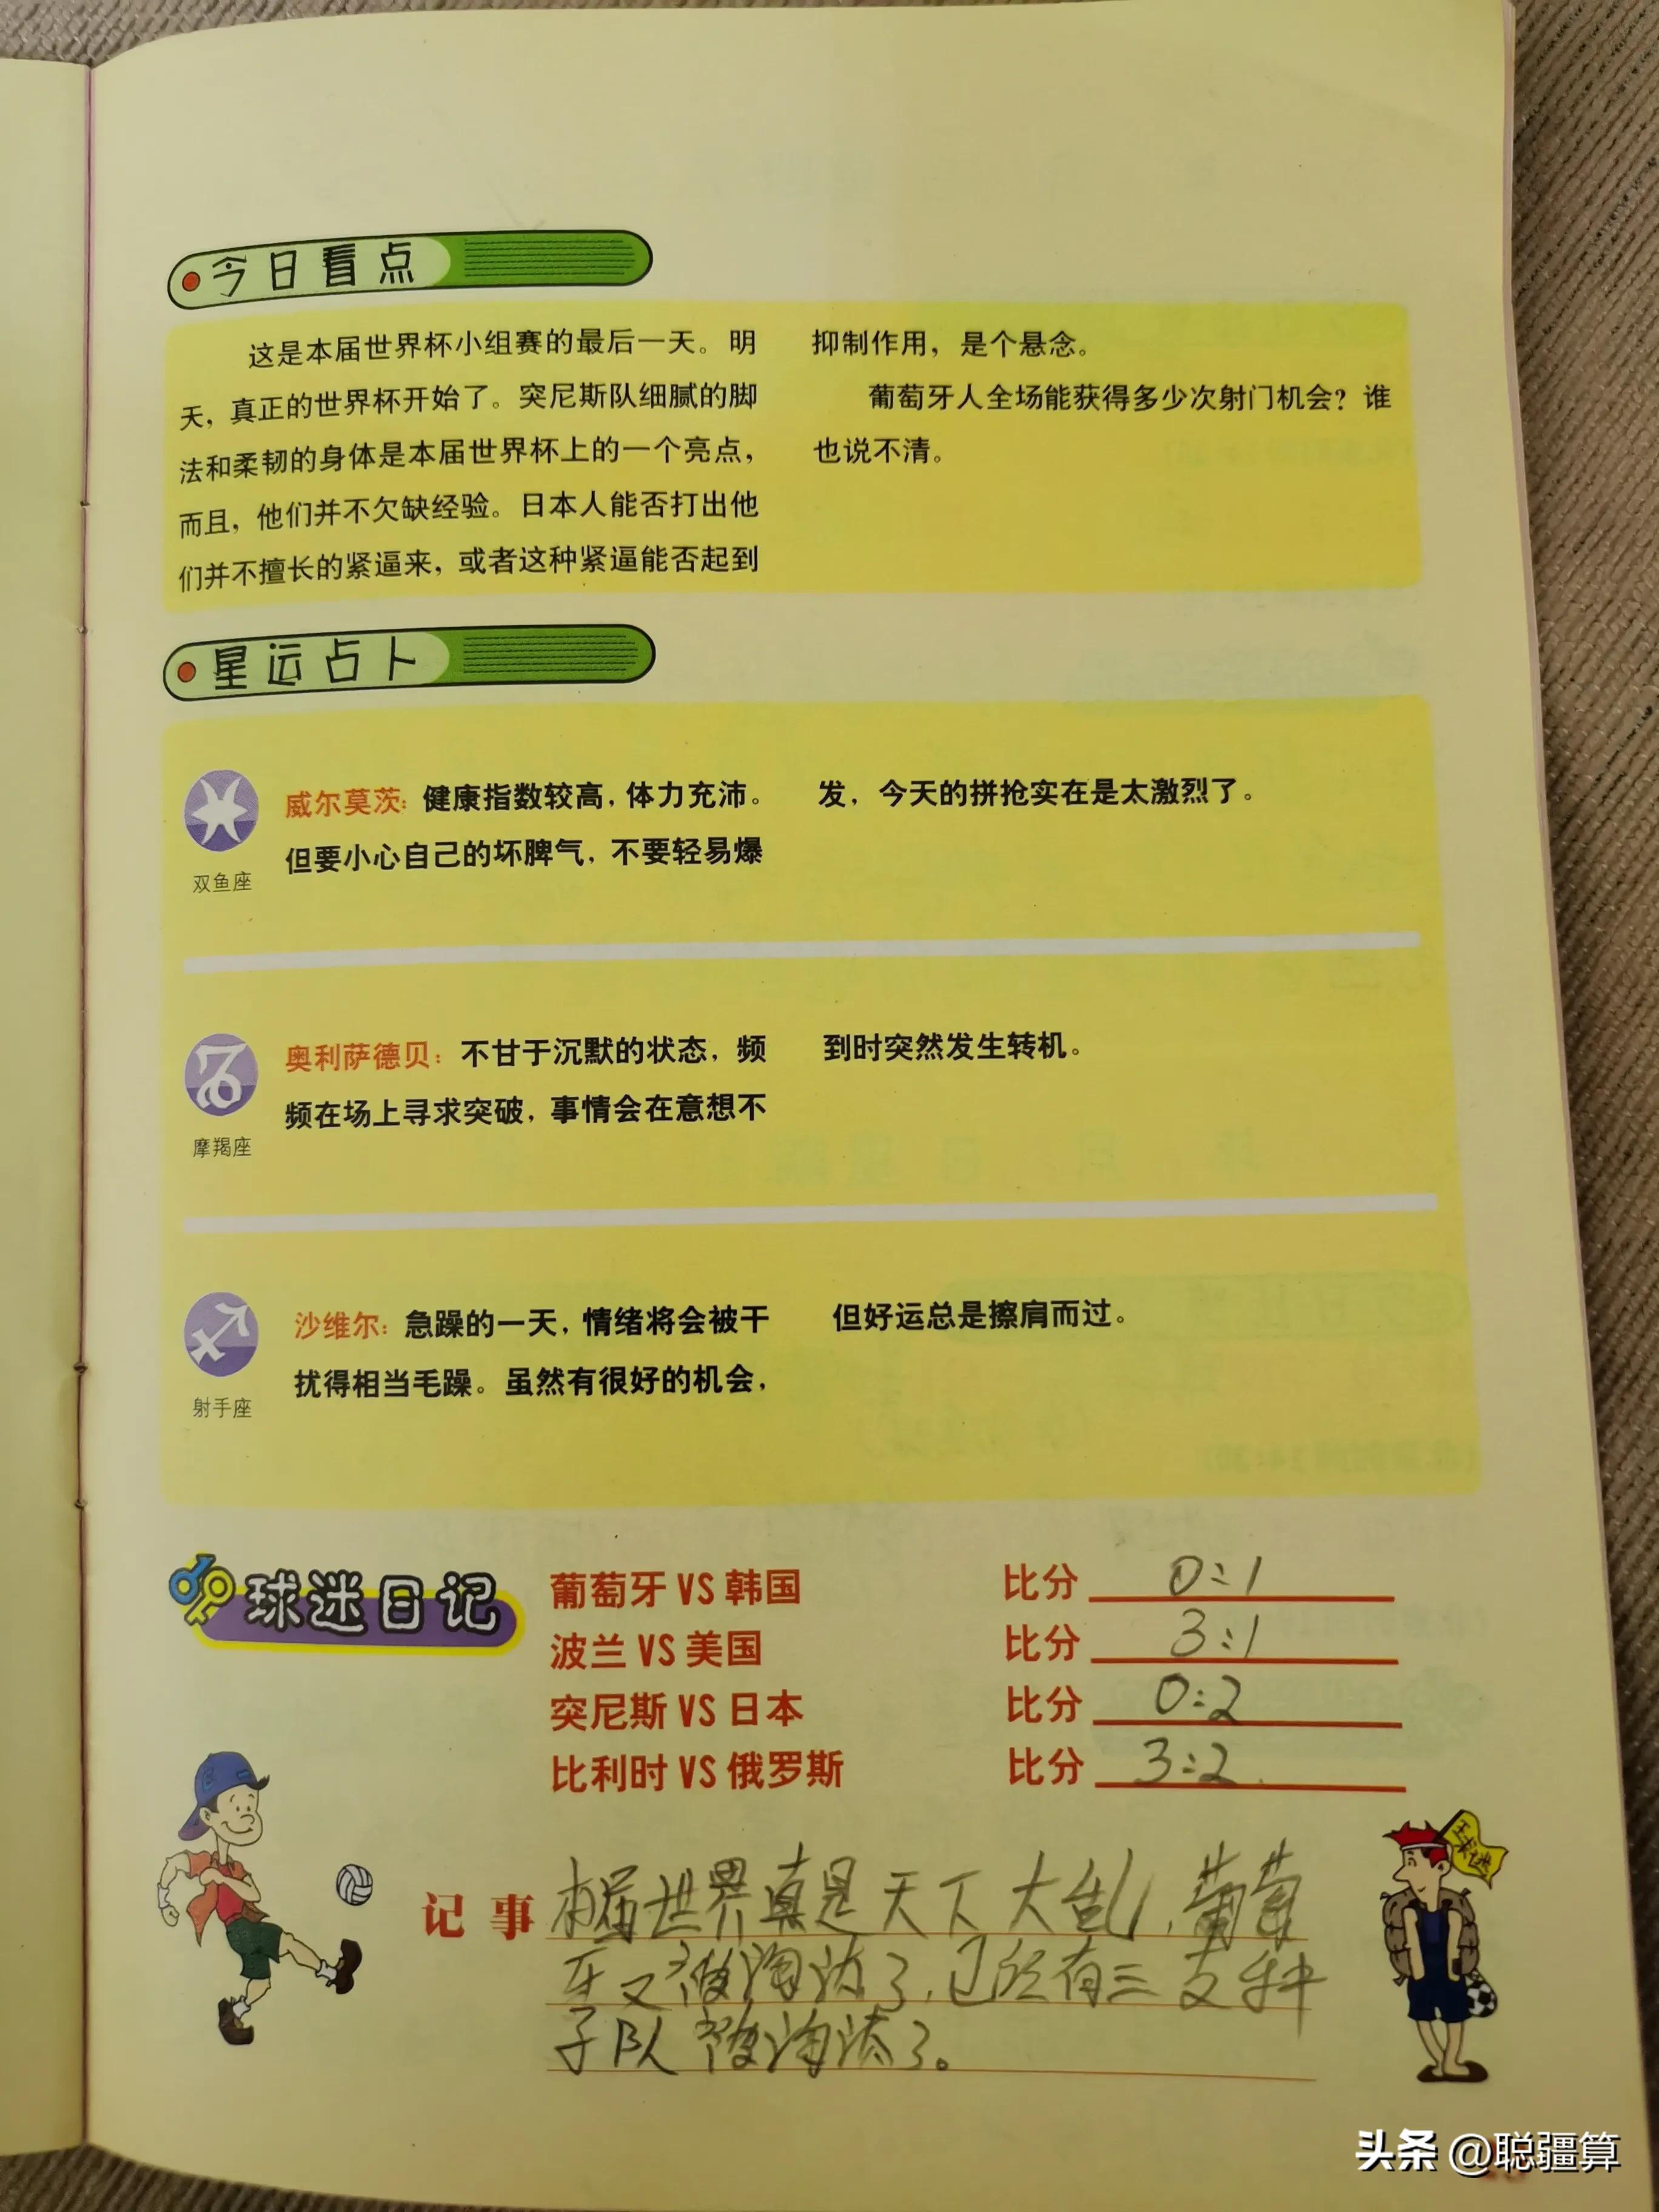 今日看点
这是本届世界杯小组赛的最后一天。明
天，真正的世界杯开始了。突尼斯队细腻的脚
法和柔韧的身体是本届世界杯上的一个亮点，
而且，他们并不欠缺经验。日本人能否打出他
们并不擅长的紧逼来，或者这种紧逼能否起到
抑制作用，是个悬念。
葡萄牙人全场能获得多少次射门机会？谁
也说不清。
星运占卜
双鱼座
威尔莫茨：健康指数较高，体力充沛。
但要小心自己的坏脾气，不要轻易爆
发，今天的拼抢实在是太激烈了。
摩羯座
奥利萨德贝：不甘于沉默的状态，频
频在场上寻求突破，事情会在意想不
到时突然发生转机。
射手座
沙维尔：急躁的一天，情绪将会被干
扰得相当毛躁。虽然有很好的机会，
但好运总是擦肩而过。
球迷日记
葡萄牙 VS 韩国 比分 0:1
波兰 VS 美国 比分 3:1
突尼斯 VS 日本 比分 0:2
比利时 VS 俄罗斯 比分 3:2
记事 本届世界真是天下大乱，葡萄
牙又被淘汰了，已经有三支种
子队被淘汰了。
球迷
头条 @聪疆算